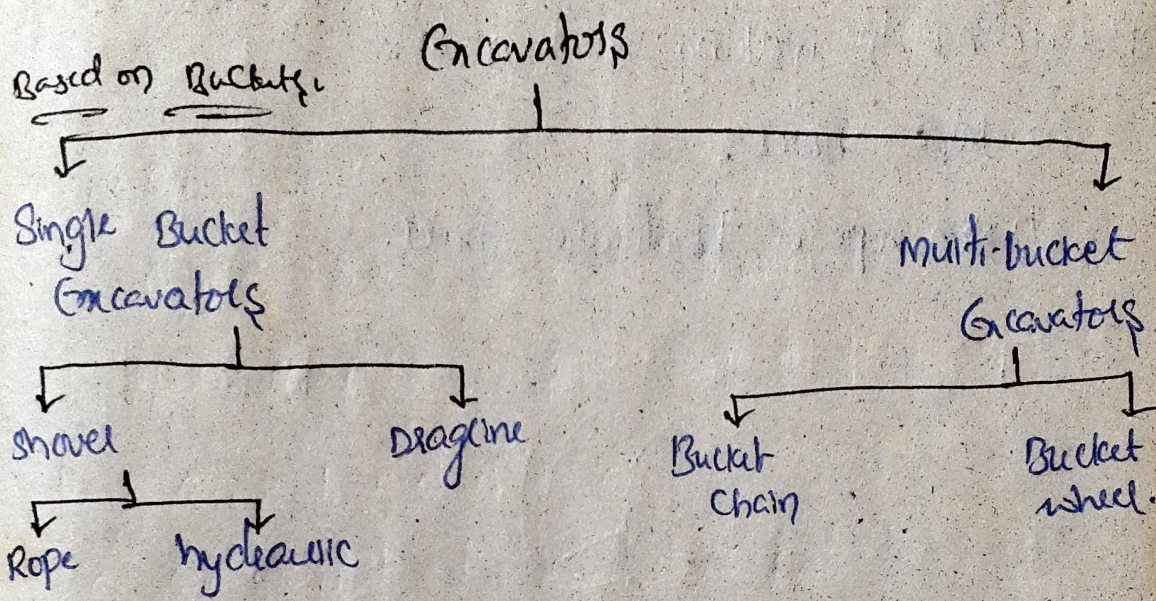 Excavators
Based on Buckets.
Single Bucket
Excavators
Multi-bucket
Excavators
Shovel
Dragline
Bucket
Chain
Bucket
wheel.
Rope
hydraulic